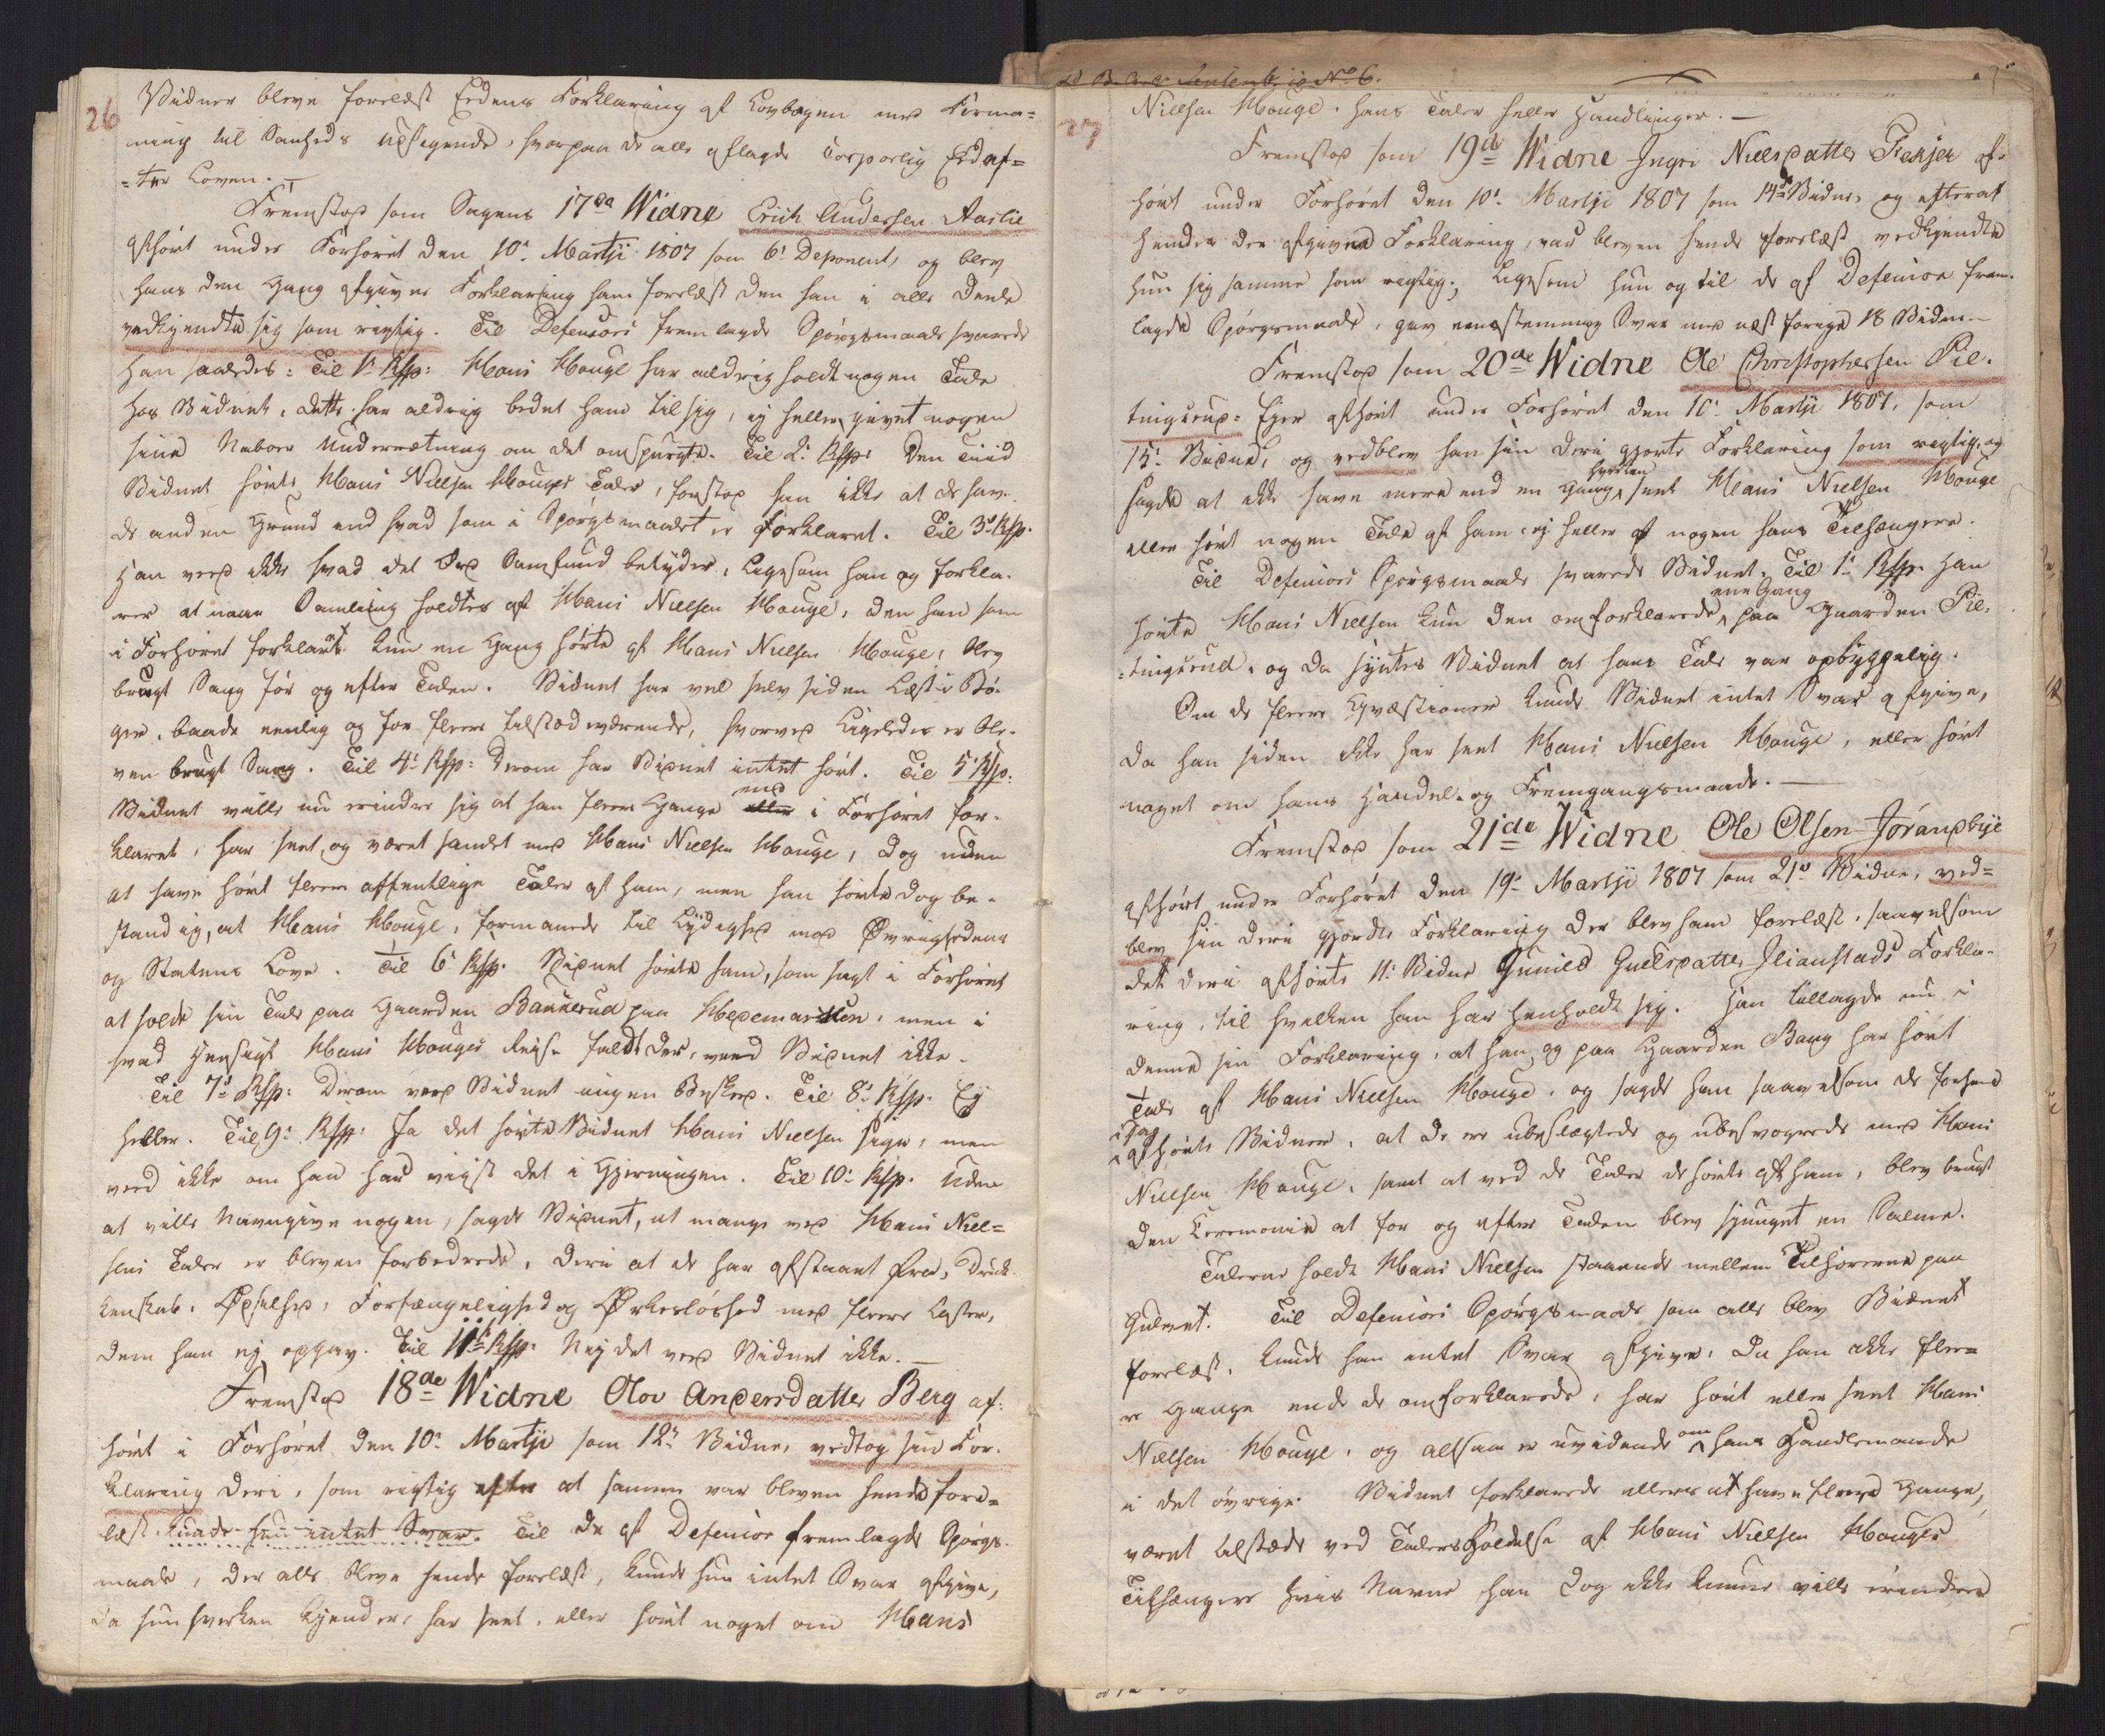 26
Vidner bleve forelæst Eedens Forklaring af Lovbogen med Forma=
ning til Sandheds Udsigende, hvorpaa de alle aflagde Corporlig Eed ef=
=ter Loven. —
Fremstod som Sagens 17de Widne Erich Andersen Aaslie
afhørt under Forhøret den 10de Martji 1807 som 6te Deponent, og blev
hans den Gang afgivne Forklaring ham forelæst den han i alle Deele
vedkjendte sig som rigtig. Til Defensors fremlagde Spørgsmaale svarede
Han saaledes: Til 1te Ksp: Hans Houge har aldrig holdt nogen Tale
hos Vidnet, dette har aldrig bedet ham til sig, ej heller givet nogen
sine Naboer Underretning om det omspurgte. Til 2. Ksp: Den Tiid
Vidnet hørte Hans Nielsen Houges Taler, forstod han ikke at de hav-
de anden Grund end hvad som i Spørgsmaalet er forklaret. Til 3die Ksp.
Han veed ikke hvad det Ord Samfund betyder, Ligesom han og forkla-
rer at naar Samling holdtes af Hans Nielsen Houge, den han som
i Forhøret forklaret kun en Gang hørte af Hans Nielsen Houge, blev
brugt Sang før og efter Talen. Vidnet har vel selv siden Læst i Bø-
ger, baade eenlig og for flere tilstædeværende, hvorved Ligeledes er ble-
ven brugt Sang. Til 4de Ksp: Derom har Vidnet intet hørt. Til 5te Ksp:
Vidnet ville nu erindre sig at han flere Gange eller end i Forhøret for-
klaret, har seet og været samlet med Hans Nielsen Houge, dog uden
at have hørt flere offentlige Taler af ham, men han hørte dog be-
standig, at Hans Houge, formanede til Lydighed mod Øvrighedens
og Statens Love. Til 6te Ksp. Vidnet hørte ham, som sagt i Forhøret
at holde sin Tale paa Gaarden Bannerud paa Hedemarken, men i
hvad Hensigt Hans Houges Reise faldt der, veed Vidnet ikke.
Til 7de Ksp: Derom veed Vidnet ingen Beskeed. Til 8de Ksp. Ej
heller. Til 9de Ksp: Ja det hørte Vidnet Hans Nielsen sige, men
veed ikke om han har viist det i Gjerningen. Til 10de Ksp. Uden
at ville Navngive nogen, sagde Vidnet, at mange ved Hans Niel=
sens Taler er bleven forbedrede, deri at de har afstaaet fra, Druk-
kenskab, Ødselhed, Forfængelighed og Ørkesløshed med flere Laster,
dem han ej opgav. Til 11te Ksp. Nej det veed Vidnet ikke. —
Fremstod 18de Widne Olov Andersdatter Berg af-
hørt i Forhøret den 10de Martji som 12te Vidne, vedtog sin For-
klaring deri, som rigtig efter at samme var bleven hende fore=
læst. kunde hun intet Svar. Til de af Defensor fremlagde Spørgs-
maale, der alle bleve hende forelæst, kunde hun intet Svar afgive,
Da hun hverken kjender, har seet, eller hørt noget om Hans
No 6.
27
Nielsen Houge, hans Taler heller Handlinger. —
Fremstod som 19de Widne Ingri Nielsdatter af-
hørt under Forhøret den 10de Martji 1807 som 14de Vidne, og efterat
hendes der afgivne Forklaring, var bleven hende forelæst vedkjendte
hun sig samme som rigtig, Ligesom hun og til de af Defensor frem-
lagde Spørgsmaale, gav eenstemmig Svar med næst forige 18 Vidne.—
Fremstod som 20de Widne Ole Christophersen Pil-
tingsrud= Ejer afhørt under Forhøret den 10de Martji 1807, som
15de Vidne, og vedblev han sin deri gjorte Forklaring som rigtig, og
sagde at ikke have mere end en Gang hverken seet Hans Nielsen Houge
eller hørt nogen Tale af ham, ej heller af nogen hans Tilhængere.
Til Defensors Spørgsmaale svarede Vidnet. Til 1te Ksp. Han
hørte Hans Nielsen kun den omforklarede ene Gang paa Gaarden Pil-
=tingsrud, og da syntes Vidnet at hans Tale var opbyggelig.
Om de flere Qvæstioner kunde Vidnet intet Svar afgive,
da han siden ikke har seet Hans Nielsen Houge, eller hørt
noget om hans Handel- og Fremgangsmaade. —
Fremstod som 21de Widne Ole Olsen Jørandbye
afhørt under Forhøret den 19de Martji 1807 som 21de Vidne, ved=
blev sin deri gjorde Forklaring der blev ham forelæst, saavelsom
det deri afhørte 11te Vidne Gunild Forkla-
ring, til hvilken han har henholdt sig. Han tillagde nu i
denne sin Forklaring, at han og paa Gaarden Bang har hørt
Tale af Hans Nielsen Houge, og sagde han saavelsom de forhen
i Dag afhørte Vidner, at de er ubeslægtede og ubesvogrede med Hans
Nielsen Houge, samt at ved de Taler de hørte af ham, blev brugt
den Ceremonie at for og efter Talen blev sjunget en Psalme.
Talerne holdt Hans Nielsen staaende mellem Tilhørerne paa
Gulvet. Til Defensors Spørgsmaale som alle blev Vidnet
forelæst, kunde han intet Svar afgive, Da han ikke fler=
re Gange end de omforklarede, har hørt eller seet Hans
Nielsen Houge, og altsaa er uvidende om hans Handlemaade
i det øvrige. Vidnet forklarede ellers at have flere Gange,
været tilstæde ved Talers Holdelse af Hans Nielsen Houges
Tilhængere hvis Navne han dog ikke kunne ville erindre